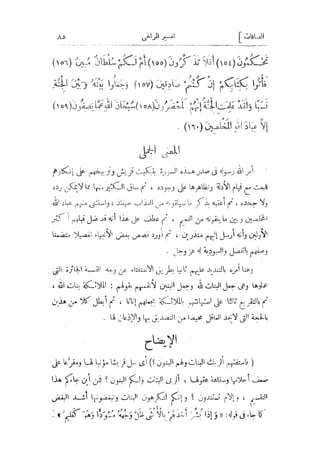 الصافات ] تفسير المراغى ٨٥
تَحْكُمُونَ (١٥٤) أَفَلَا تَذَكَّرُونَ (١٥٥) أَمْ لَكُمْ سُلْطَانٌ مُبِينٌ (١٥٦)
فَأْتُوا بِكِتَابِكُمْ إِنْ كُنْتُمْ صَادِقِينَ (١٥٧) وَجَعَلُوا بَيْنَهُ وَبَيْنَ الْجِنَّةِ
نَسَبًا وَلَقَدْ عَلِمَتِ الْجِنَّةُ إِنَّهُمْ لَمُحْضَرُونَ (١٥٨) سُبْحَانَ اللهِ عَمَّا يَصِفُونَ (١٥٩)
إِلَّا عِبَادَ اللهِ الْمُخْلَصِينَ (١٦٠) .
المعنى الجملى
أمر الله رسوله فى صدر هذه السورة بتبكيت قريش وتوبيخهم على إنكارهم
للبعث مع قيام الأدلة وتظاهرها على وجوده ، ثم ساق الكثير منها مما لا يمكن رده
ولا جحده ، ثم أعقبه بذكر ما سيلقونه من العذاب حينئذ ، واستثنى منهم عباد الله
المخلصين وبين ما يلقونه من النعيم ، ثم عطف على هذا أنه قد ضل قبلهم أكثر
الأولين وأنه أرسل إليهم منذرين ، ثم أورد قصص بعض الأنبياء تفصيلا متضمنا
وصفهم بالفضل والعبودية له عز وجل .
وهنا أمره بالتنديد عليهم ثانيا بطريق الاستفتاء عن وجه القسمة الجائرة التى
عملوها وهى جعل البنات لله وجعل البنين لأنفسهم بقولهم : الملائكة بنات الله ،
ثم بالتقريع ثالثا على استهانتهم بالملائكة بجعلهم إناثا ، ثم أبطل كلا من هذين
بالحجة التى لا يجد العاقل محيصا من التصديق بها والإذعان لها .
الإيضاح
( فاستفتهم ألربك البنات ولهم البنون ؟ ) أى سل قريشا مؤنبا لها ومقرعا على
ضعف أحلامها وسفاهة عقولها : ألربى البنات ولكم البنون ؟ فمن أين جاءكم هذا
التقسيم ، وإلام تستندون ؟ وإنكم لتكرهون البنات وتبغضونها أشد البغض
كما جاء فى قوله : « وَإِذَا بُشِّرَ أَحَدُهُمْ بِالْأُنْثَى ظَلَّ وَجْهُهُ مُسْوَدًّا وَهُوَ كَظِيمٌ » .